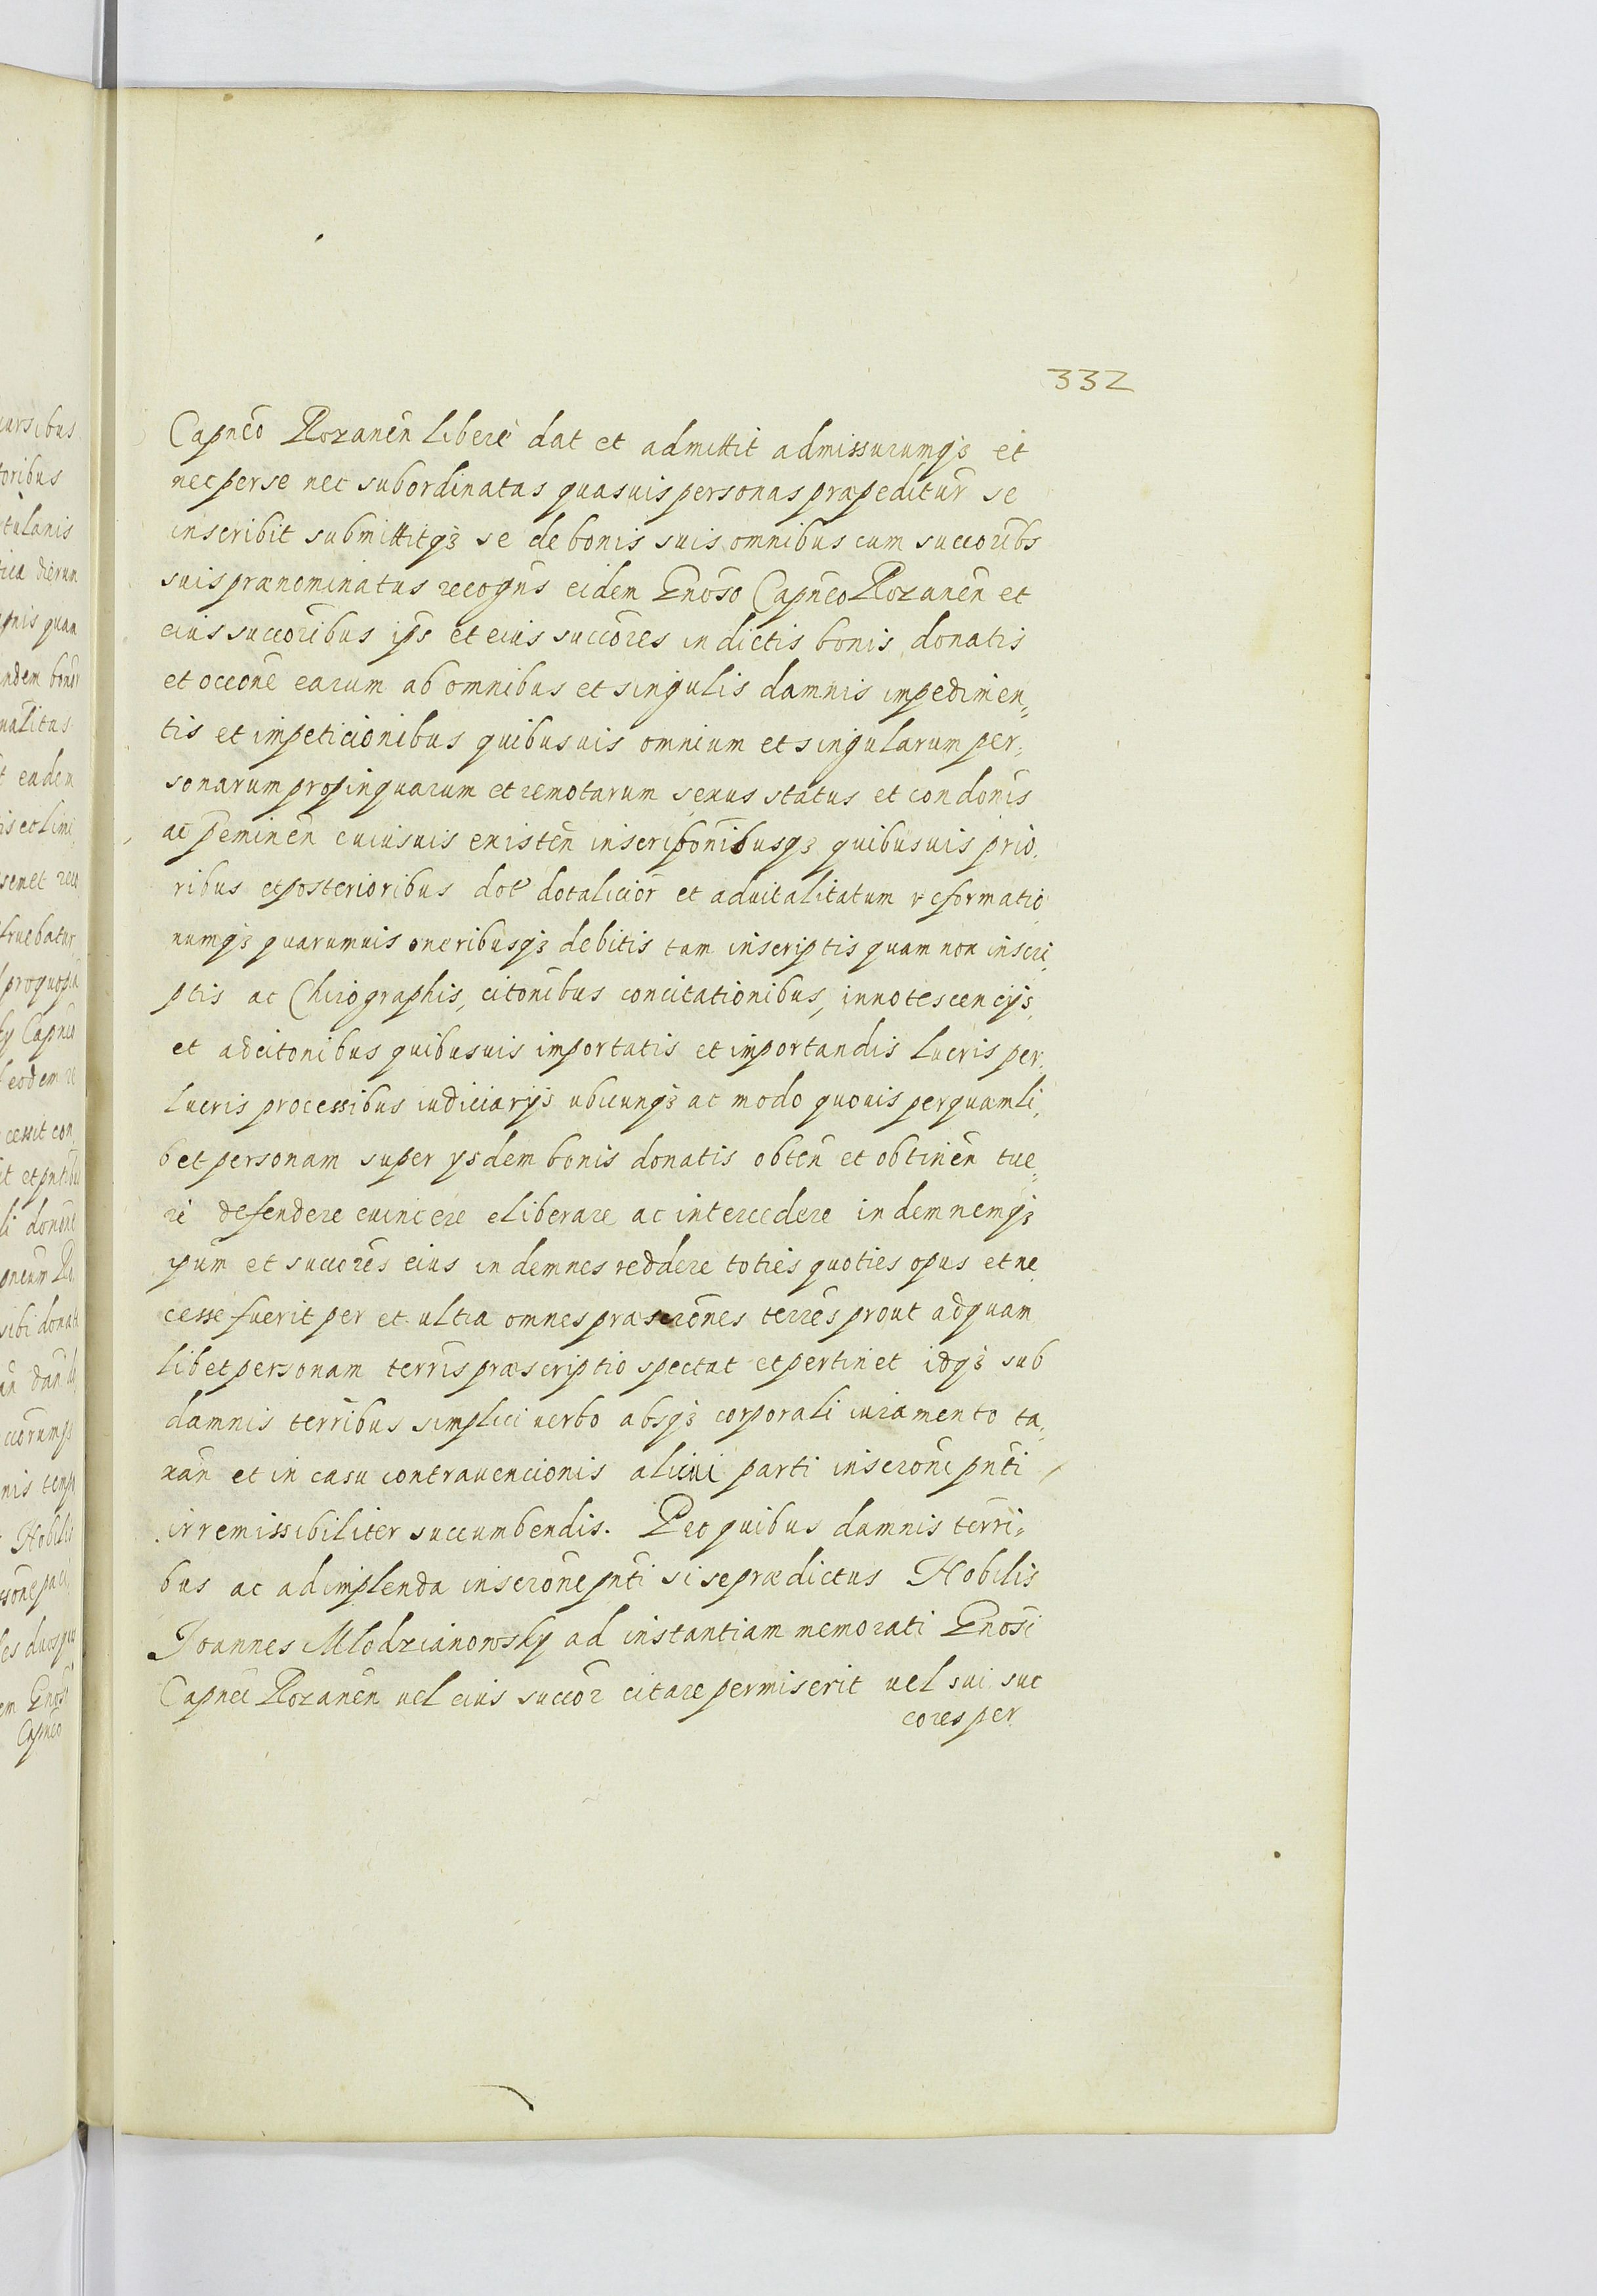 332
Capnẽo Rozanẽn liberè dat et admittit admissurumqꝫ et
nec per se nec subordinatas quasuis personas præpeditur̃ se
inscribit submittitqꝫ se de bonis suis omnibus cum succorib̃s
suis prænominatus recogñs eidem Gnõso Capnẽo Rozanẽn et
eius succor̃ibus ip̃s et eius succor̃es in dictis bonis donatis
et occõne earum ab omnibus et singulis damnis impedimen„
tis et impeticionibus quibusuis omnium et singularum per„
sonarum propinquarum et remotarum sexus status et condonĩs
ac p̃eminẽn cuiusuis existẽn inscripõnibusqꝫ quibusuis prio„
ribus et posterioribus dot̃ dotalicior̃ et aduitalitatum reformatio
numqꝫ quarumuis oneribusqꝫ debitis tam inscriptis quam non inscri„
ptis ac Chirographis, citõnibus concitationibus, innotescencijs,
et adcitõnibus quibusuis importatis et importandis lucris per„
lucris processibus iudiciarijs ubicunqꝫ ac modo quouis per quamli„
bet personam super ysdem bonis donatis obtẽn et obtinẽn tue„
ri defendere euincere eliberare ac intercedere indemnemqꝫ
ipũm et succor̃es eius indemnes reddere toties quoties opus et ne„
cesse fuerit per et ultra omnes præscrõnes terr̃es prout ad quam
libet personam terrĩs præscriptio spectat et pertinet idqꝫ sub
damnis terrĩbus simplici uerbo absqꝫ corporali iuramento ta„
xañ et in casu contrauencionis alicui parti inscrõni pñti
irremissibiliter succumbendis. Pro quibus damnis terri„
bus ac adimplenda inscrõne pñti si se prædictus Nobilis
Joannes Mlodzianowsky ad instantiam memorati Gnõsi
Capnẽi Rozanẽn uel eius succor̃ citare permiserit uel sui suc
cores per